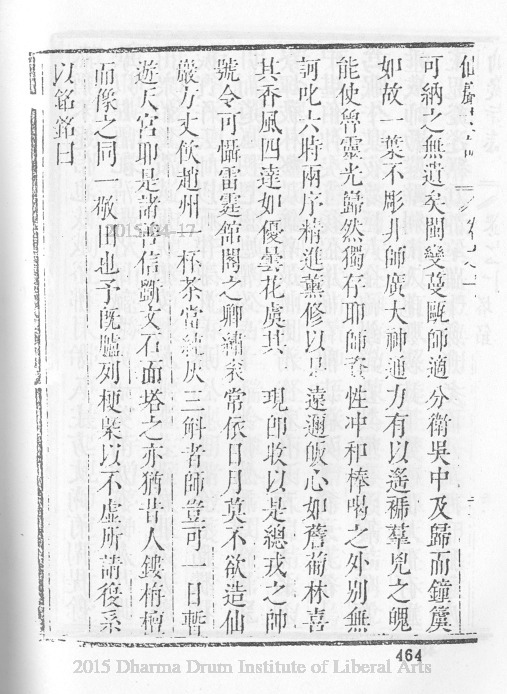 可納之無遺矣閩變蔓甌師適分衛吳中及歸而鐘簴
如故一葉不彫非師廣大神通力有以遙褫羣兇之魄
能使魯靈光歸然獨存耶師賫性冲和棒喝之外別無
訶叱六時兩序精進薰修以是遠邇皈心如薝蔔林喜
其香風四達如優曇花虞其 現卽收以是總戎之帥
號令可懾雷霆館閣之卿繡衮常依日月莫不欲造仙
嚴方丈飲趙州一杯茶當純灰三斛者師豈可一日暫
遊天宮耶是諸善信斵文石面塔之亦猶昔人鏤栴檀
而像之同一敬田也予旣臚列梗槩以不虛所請復系
以銘銘曰
2015-04-17
464
2015 Dharma Drum Institute of Liberal Arts